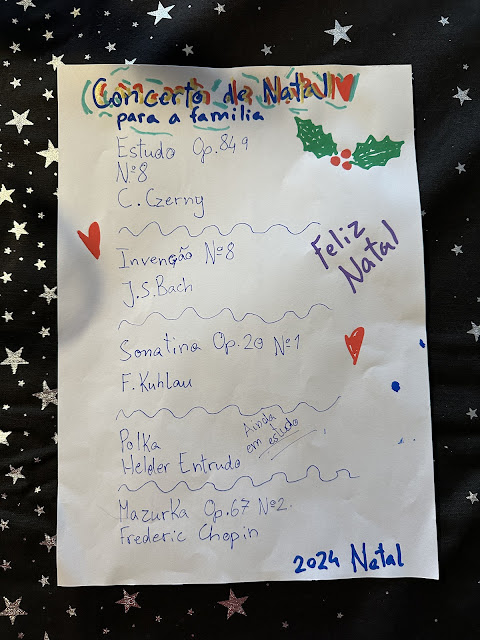 Concerto de Natal
para a familia
Estudo Op.849
Nº8
C. Czerny
Invenção Nº8
J.S.Bach
Feliz
Natal
Sonatina Op.20 Nº1
F. Kuhlau
Polka
Helder Entrudo
Ainda
em estudo
Mazurka Op.67 Nº2.
Frederic Chopin
2024 Natal